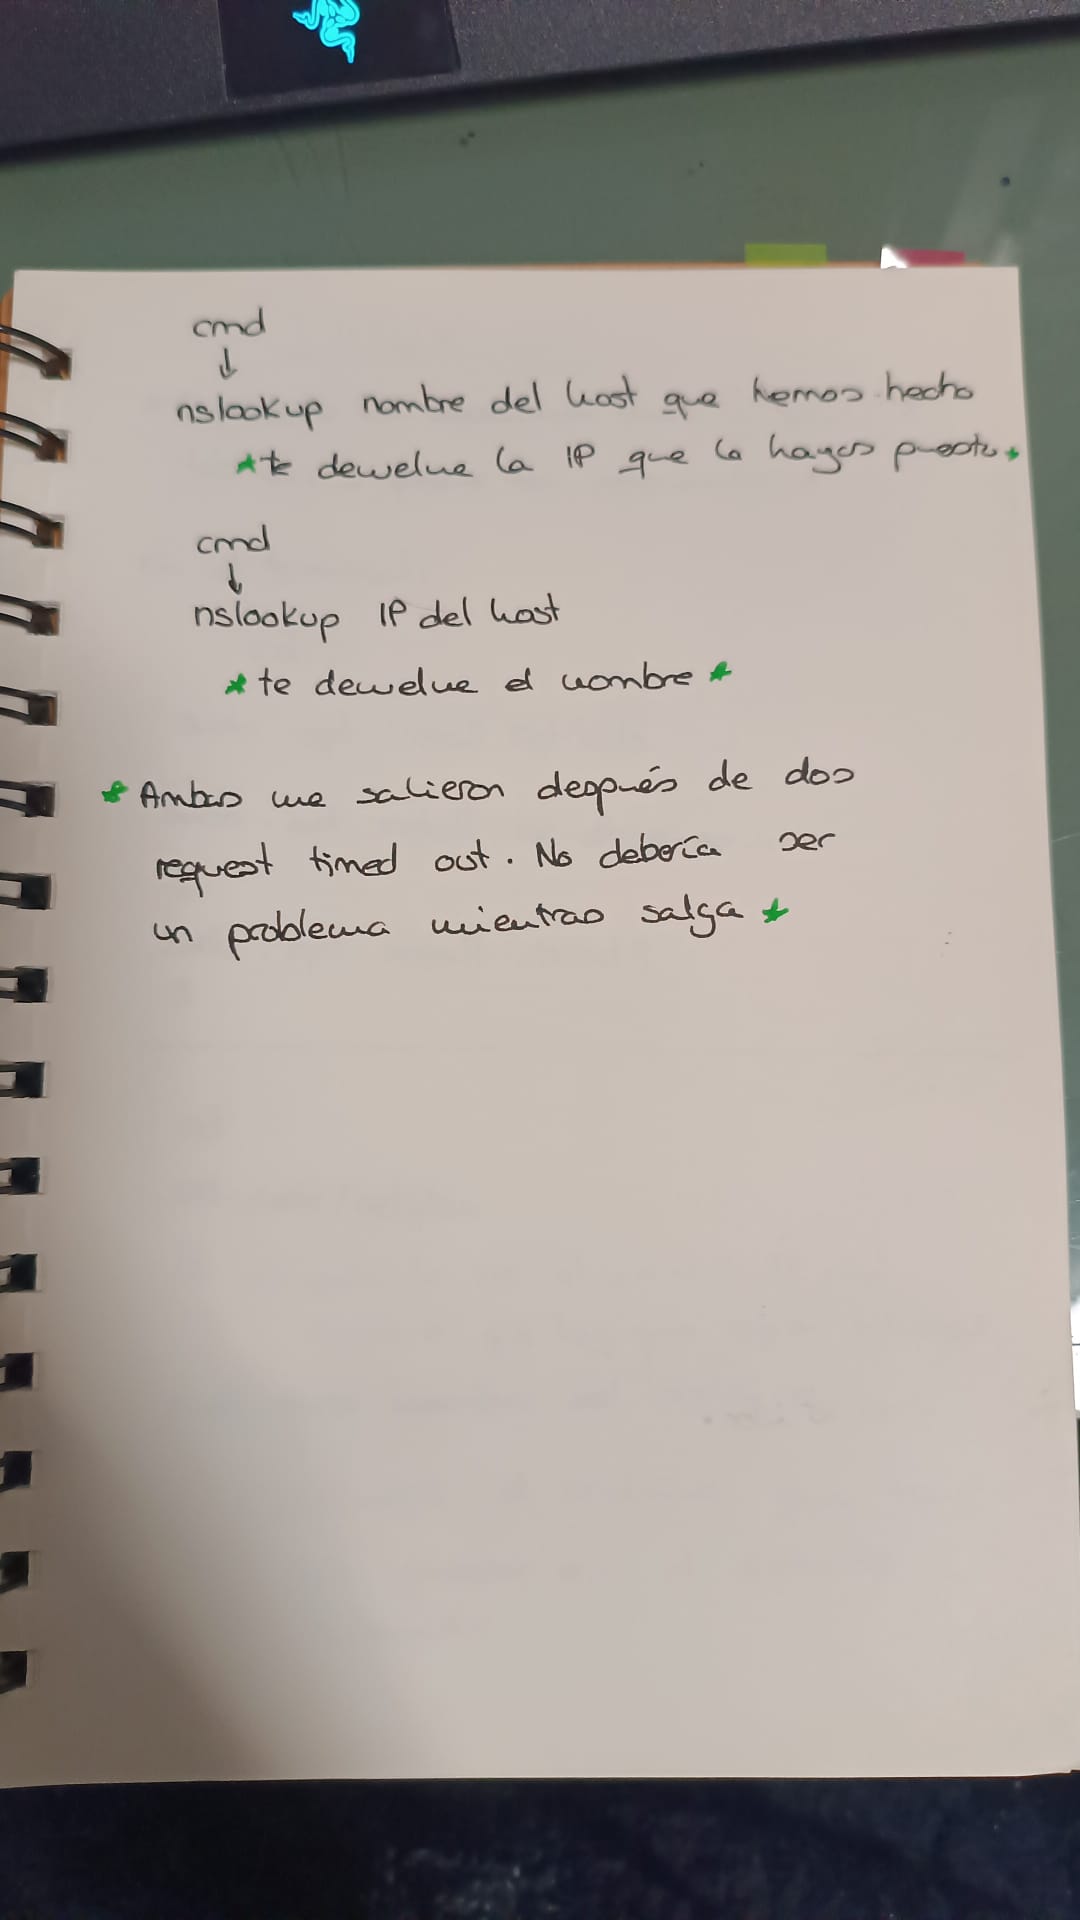 cmd
↓
nslookup nombre del host que hemos hecho
★ te devuelve la IP que la hayas puesto ★
cmd
↓
nslookup IP del host
★ te devuelve el nombre ★
★ Ambas me salieron después de dos
request timed out. No debería ser
un problema mientras salga ★